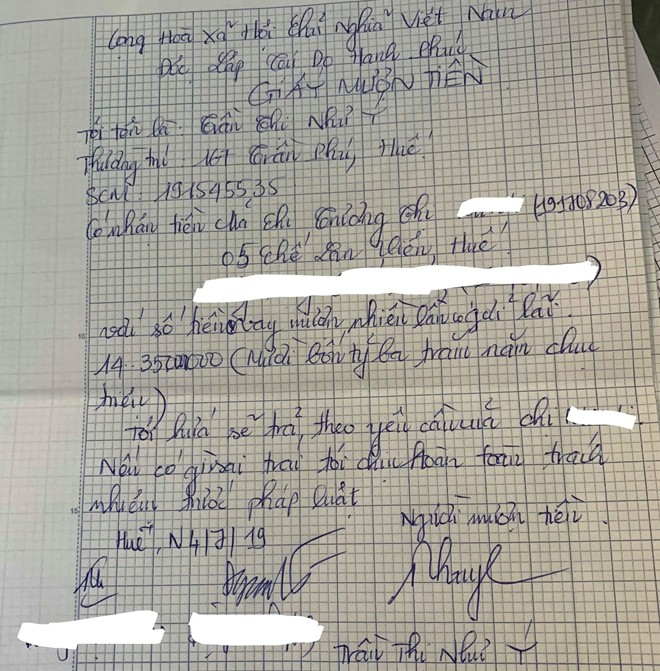 Cộng Hoà Xã Hội Chủ Nghĩa Việt Nam
Độc Lập Tự Do Hạnh Phúc
GIẤY MƯỢN TIỀN
Tôi tên là: Trần Thị Như Ý
Thường trú: 167 Trần Phú, Huế
SCM: 191545535
Có nhận tiền của chị Trương Thị (191108203)
05 Chế Lan Viên, Huế
với số tiền vay mượn nhiều lần có gởi lãi
14.350.000.000 (Mười bốn tỷ ba trăm năm chục
triệu)
Tôi hứa sẽ trả theo yêu cầu của chị
Nếu có gì sai trái tôi chịu hoàn toàn trách
nhiệm trước pháp luật
Người mượn tiền
Huế, N 4/7/19
Trần Thị Như Ý